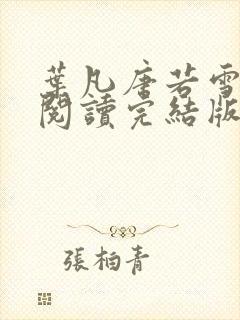 葉凡唐若雪
閱讀完結版
張柏青